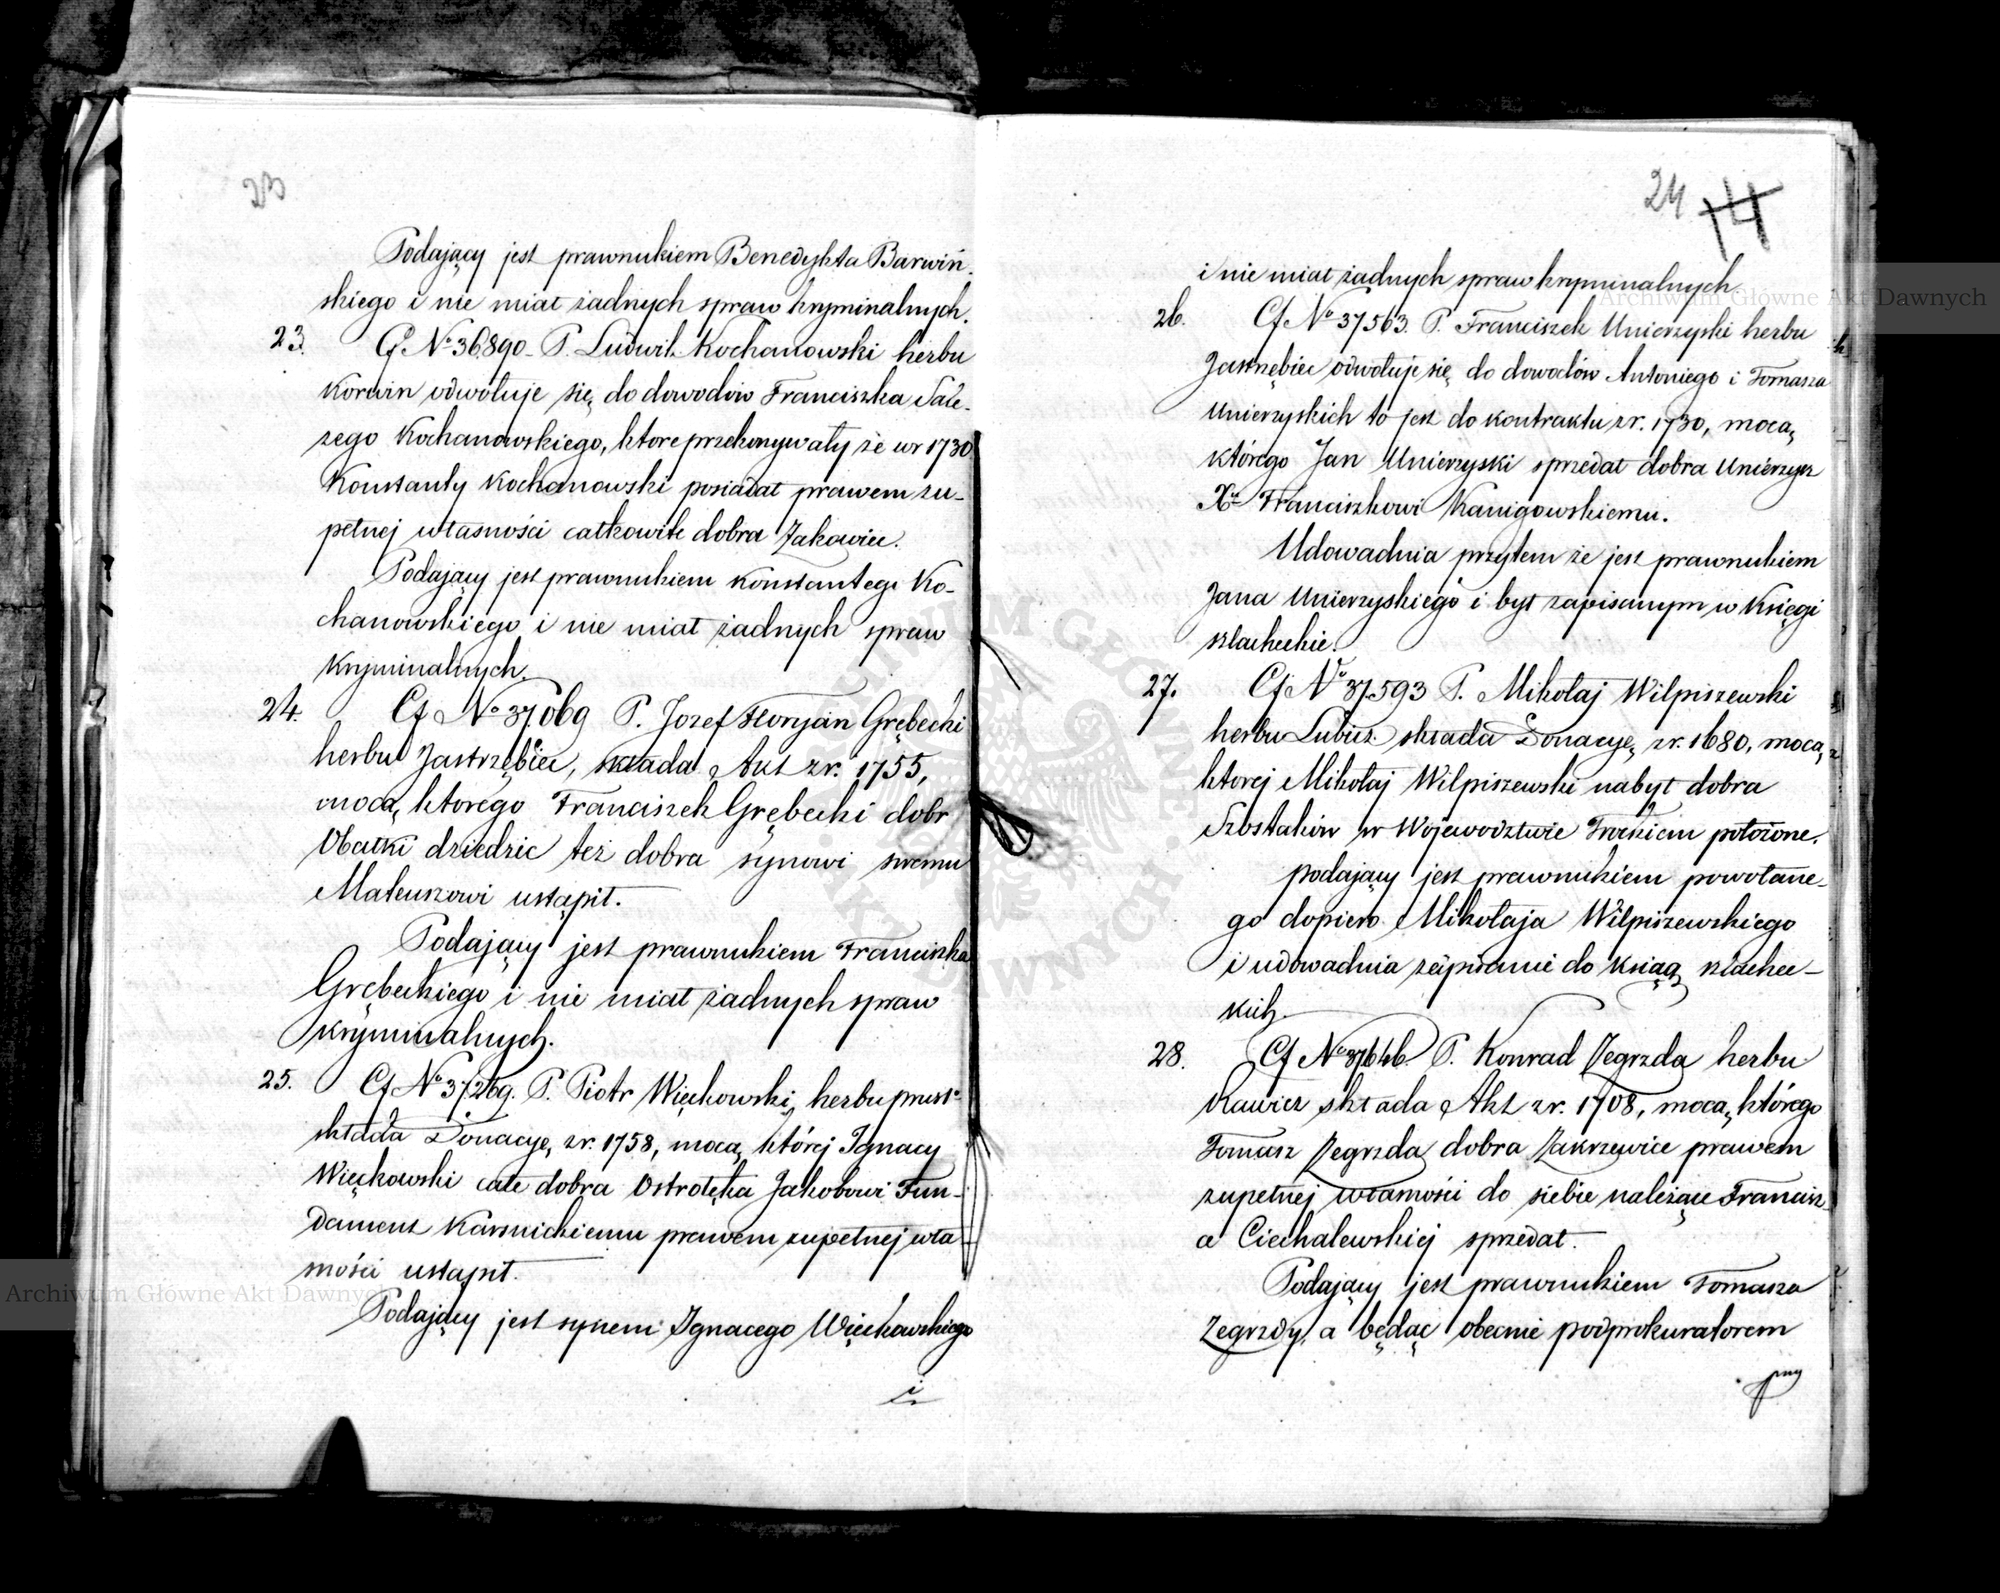 23
Podający jest prawnukiem Benedykta Barwiń-
skiego i nie miał żadnych spraw kryminalnych.
23. Cf No 36890 P. Ludwik Kochanowski herbu
Korwin odwołuje się do dowodów Franciszka Sale-
zego Kochanowskiego, które przekonywały że w r 1730
Konstanty Kochanowski posiadał prawem zu-
pełnej własności całkowite dobra Żakowiec.
Podający jest prawnukiem Konstantego Ko-
chanowskiego i nie miał żadnych spraw
kryminalnych.
24. Cf No 37069 P. Jozef Floryan Grębecki
herbu Jastrzębiec, składa Akt z r. 1755,
mocą którego Franciszek Grębecki dobr
Obałki dziedzic też dobra synowi swemu
Mateuszowi ustąpił.
Podający jest prawnukiem Franciszka
Grębeckiego i nie miał żadnych spraw
kryminalnych.
25. Cf No 37269. P. Piotr Więckowski, herbu prus 1o
składa Donacyę z r. 1758, mocą której Ignacy
Więckowski całe dobra Ostrołęka Jakobowi Fun-
dament Karsnickiemu prawem zupełnej wła-
sności ustąpił.
Podający jest synem Ignacego Więckowskiego
i
24 14
i nie miał żadnych spraw kryminalnych.
26. Cf No 37563. P. Franciszek Unierzyski herbu
Jastrzębiec odwołuje się do dowodów Antoniego i Tomasza
Unierzyskich to jest do kontraktu z r. 1730, mocą
którego Jan Unierzyski sprzedał dobra Unierzysz
Xu Franciszkowi Kanigowskiemu.
Udowadnia przytem że jest prawnukiem
Jana Unierzyskiego i był zapisanym w Księgi
szlacheckie.
27. Cf No 37593 P. Mikołaj Wilpiszewski
herbu Lubicz składa Donacyę z r. 1680, mocą
ktorej Mikołaj Wilpiszewski nabył dobra
Szostaków w Wojewodztwie Trockiem położone.
podający jest prawnukiem powołane-
go dopiero Mikołaja Wilpiszewskiego
i udowadnia zapisanie do ksiąg szlachec-
kich.
28. Cf No 37646 P. Konrad Zegrzda herbu
Rawicz składa Akt z r. 1708, mocą którego
Tomasz Zegrzda dobra Zakrzewice prawem
zupełnej własności do siebie należące Francisz-
a Ciechalewskiej sprzedał.
Podający jest prawnukiem Tomasza
Zegrzdy, a będąc obecnie podprokuratorem
przy
Archiwum Główne Akt Dawnych
Archiwum Główne Akt Dawnych
ARCHIWUM GŁÓWNE AKT DAWNYCH